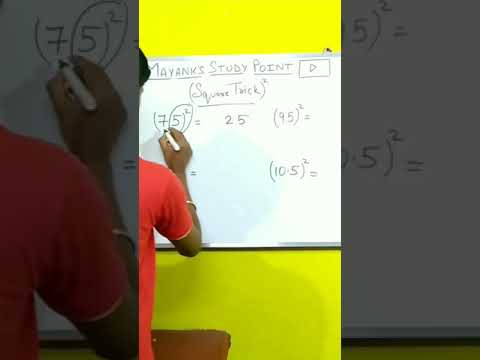 MAYANK'S STUDY POINT
(Square Trick)²
(75)² = 25 (95)² =
= (10.5)² =